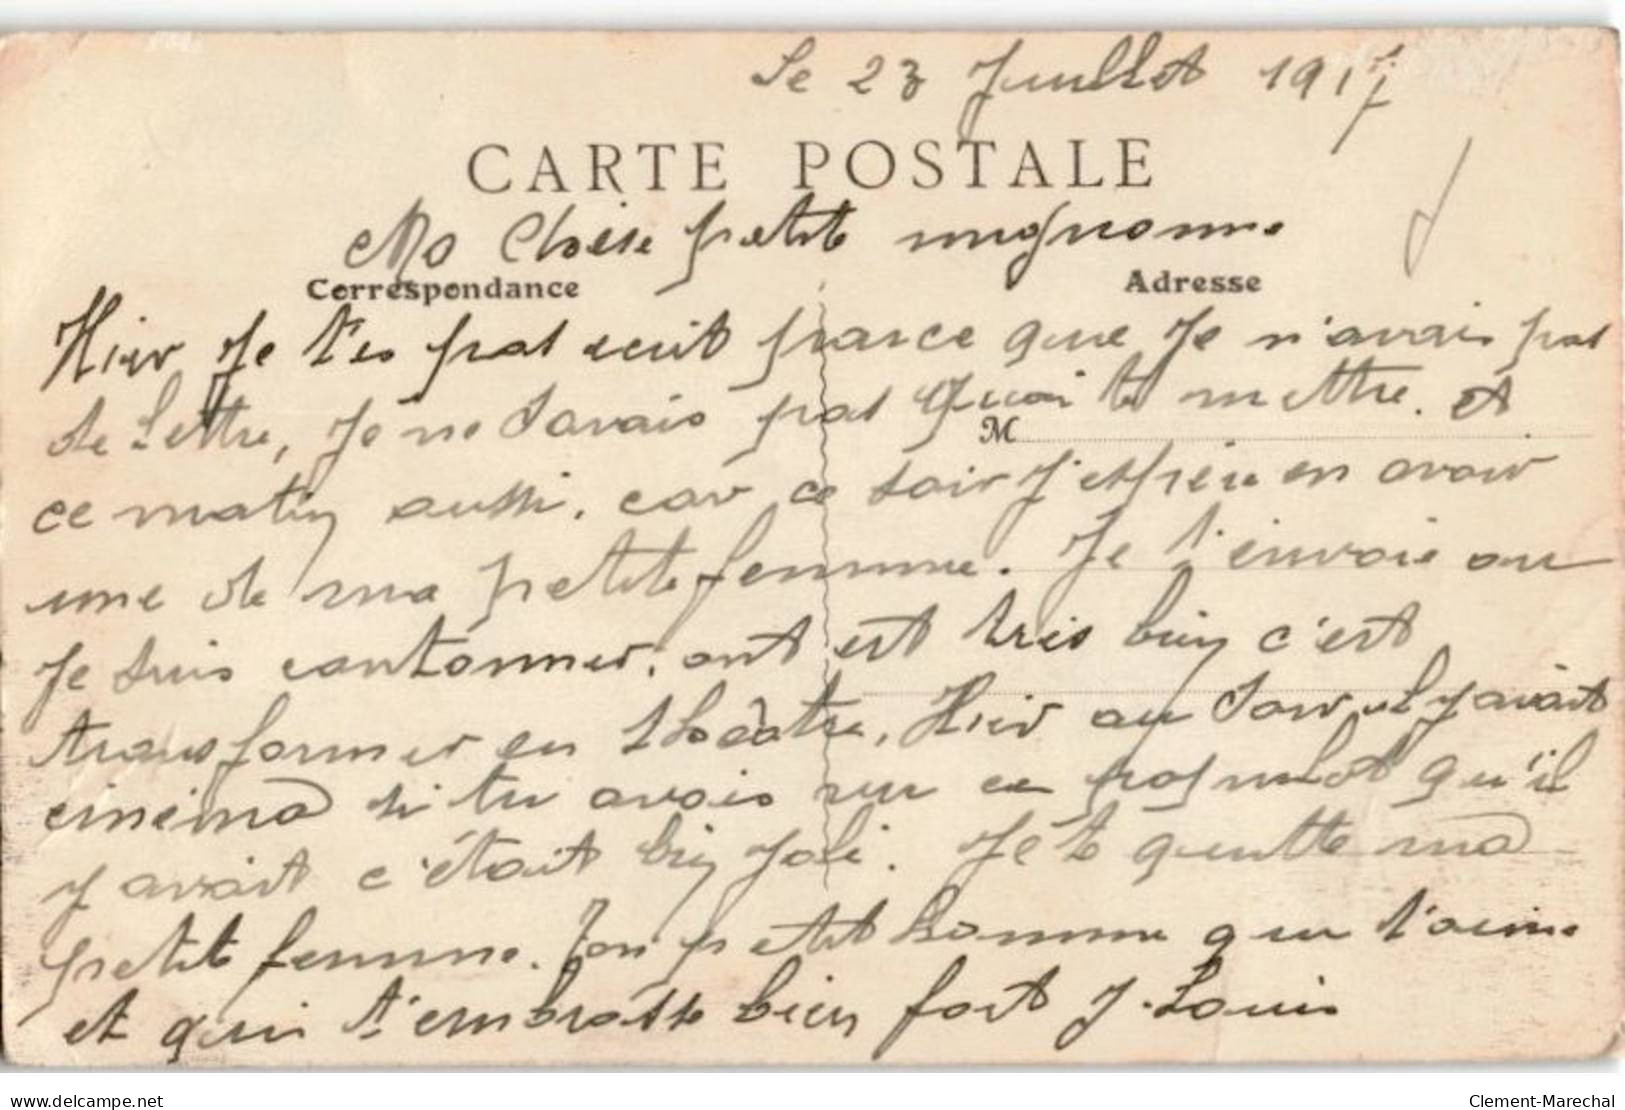 Le 23 Juillet 1917
CARTE POSTALE
Ma Chère petite mignonne
Correspondance
Adresse
Hier Je t'es pas ecrit parce que Je n'avais pas
de lettre, Je ne savais pas quoi te mettre. et
M
ce matin aussi. car ce soir J'espère en avoir
une de ma petite femme. Je t'envoie ou
Je suis cantonner. ont est très bien c'est
transformer en théâtre, Hier au soir il y avait
cinéma si tu avais vu ce qu'il
y avait c'était bien Joli. Je te quitte ma
petite femme. Ton petit homme qui t'aime
et qui t'embrasse bien fort J. Louis
www.delcampe.net
Clement-Marechal